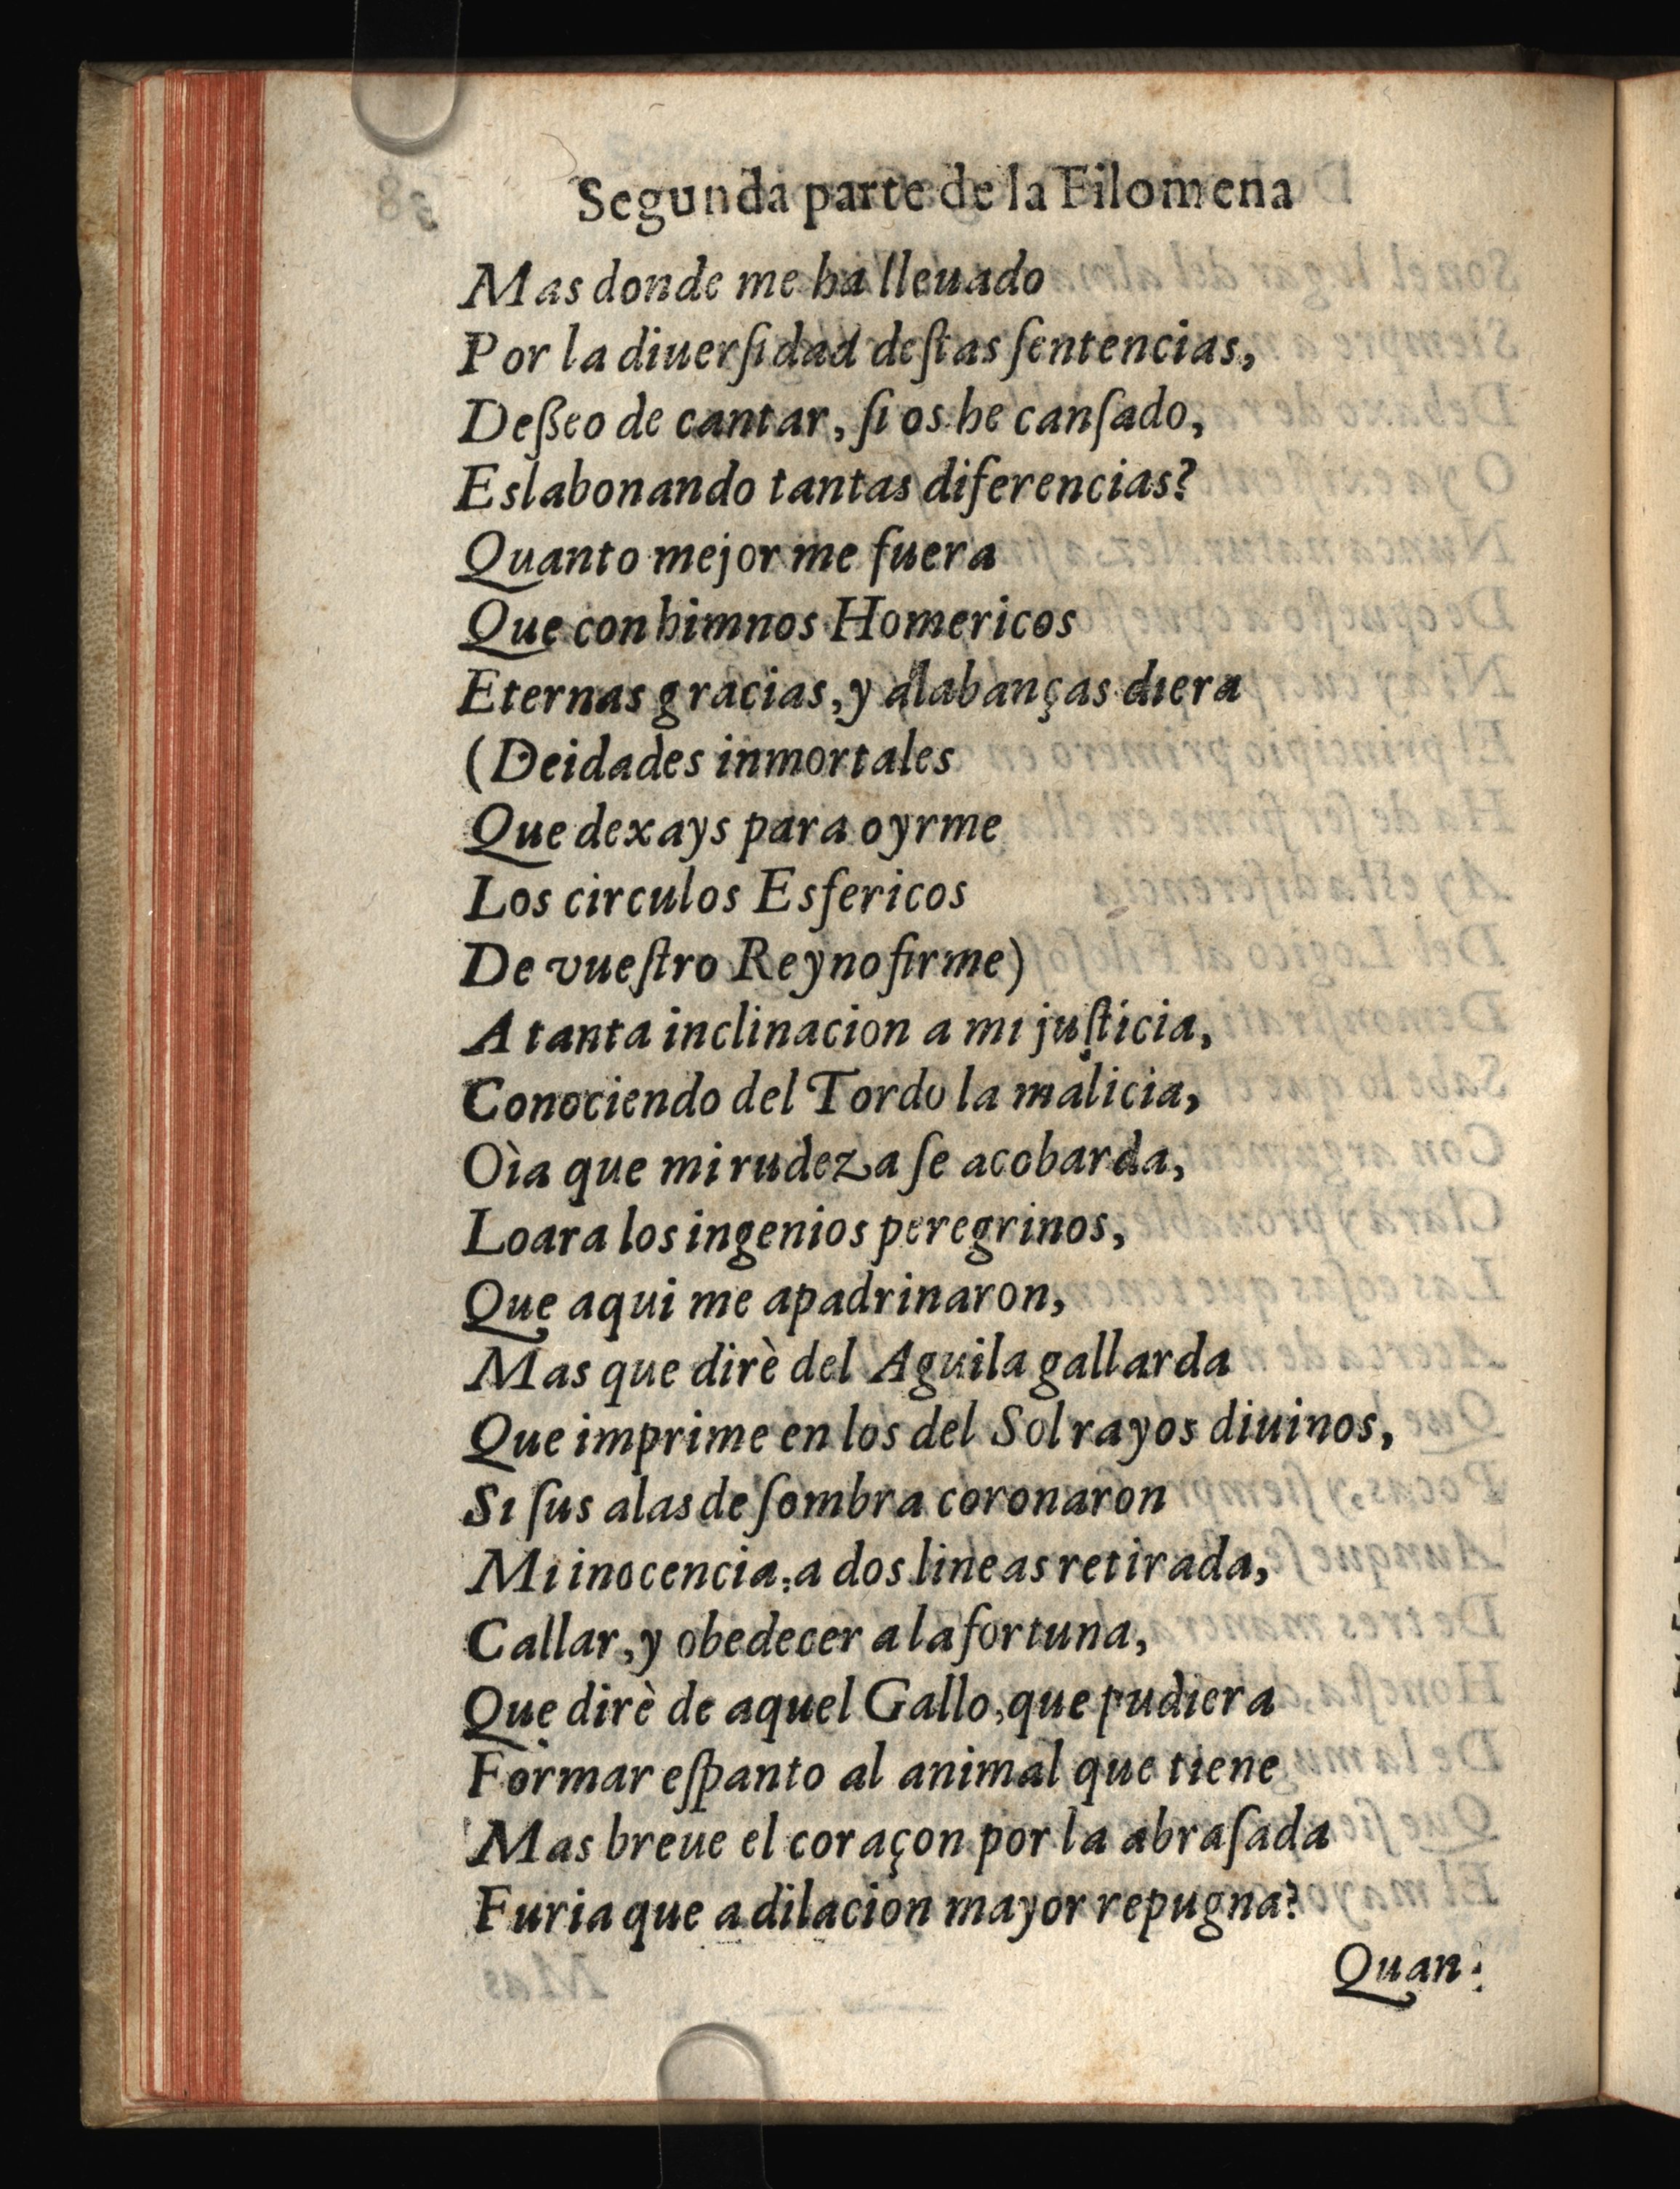 Segunda parte de la Filomena
Mas donde me ha lleuado
Por la diuerſidad deſtas ſentencias,
Deßeo de cantar, ſi os he canſado,
Eslabonando tantas diferencias?
Quanto mejor me fuera
Que con himnos Homericos
Eternas gracias, y alabanças diera
(Deidades inmortales
Que dexays para oyrme
Los circulos Esfericos
De vueſtro Reyno firme)
A tanta inclinacion a mi juſticia,
Conociendo del Tordo la malicia,
Oìa que mi rudeza ſe acobarda,
Loara los ingenios peregrinos,
Que aqui me apadrinaron,
Mas que dirè del Aguila gallarda
Que imprime en los del Sol rayos diuinos,
Si ſus alas de ſombra coronaron
Mi inocencia, a dos lineas retirada,
Callar, y obedecer a la fortuna,
Que dirè de aquel Gallo, que pudiera
Formar eſpanto al animal que tiene
Mas breue el coraçon por la abraſada
Furia que a dilacion mayor repugna?
Quan: